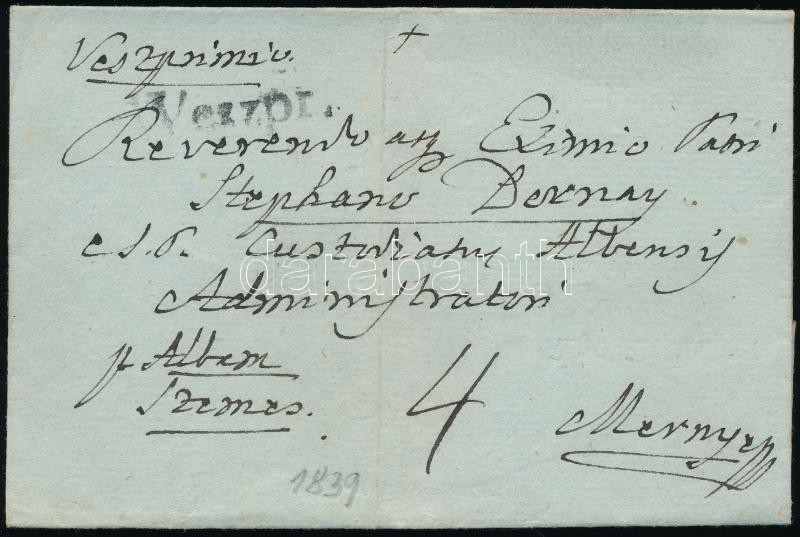 Veszprimio.
Veszpr.
Reverendo ac Eximio Patri
Stephano Dornay
e S. P. Custodiatus Albensis
Administratori
p Albam
Szemes.
4
Mernye
1839
darabanth